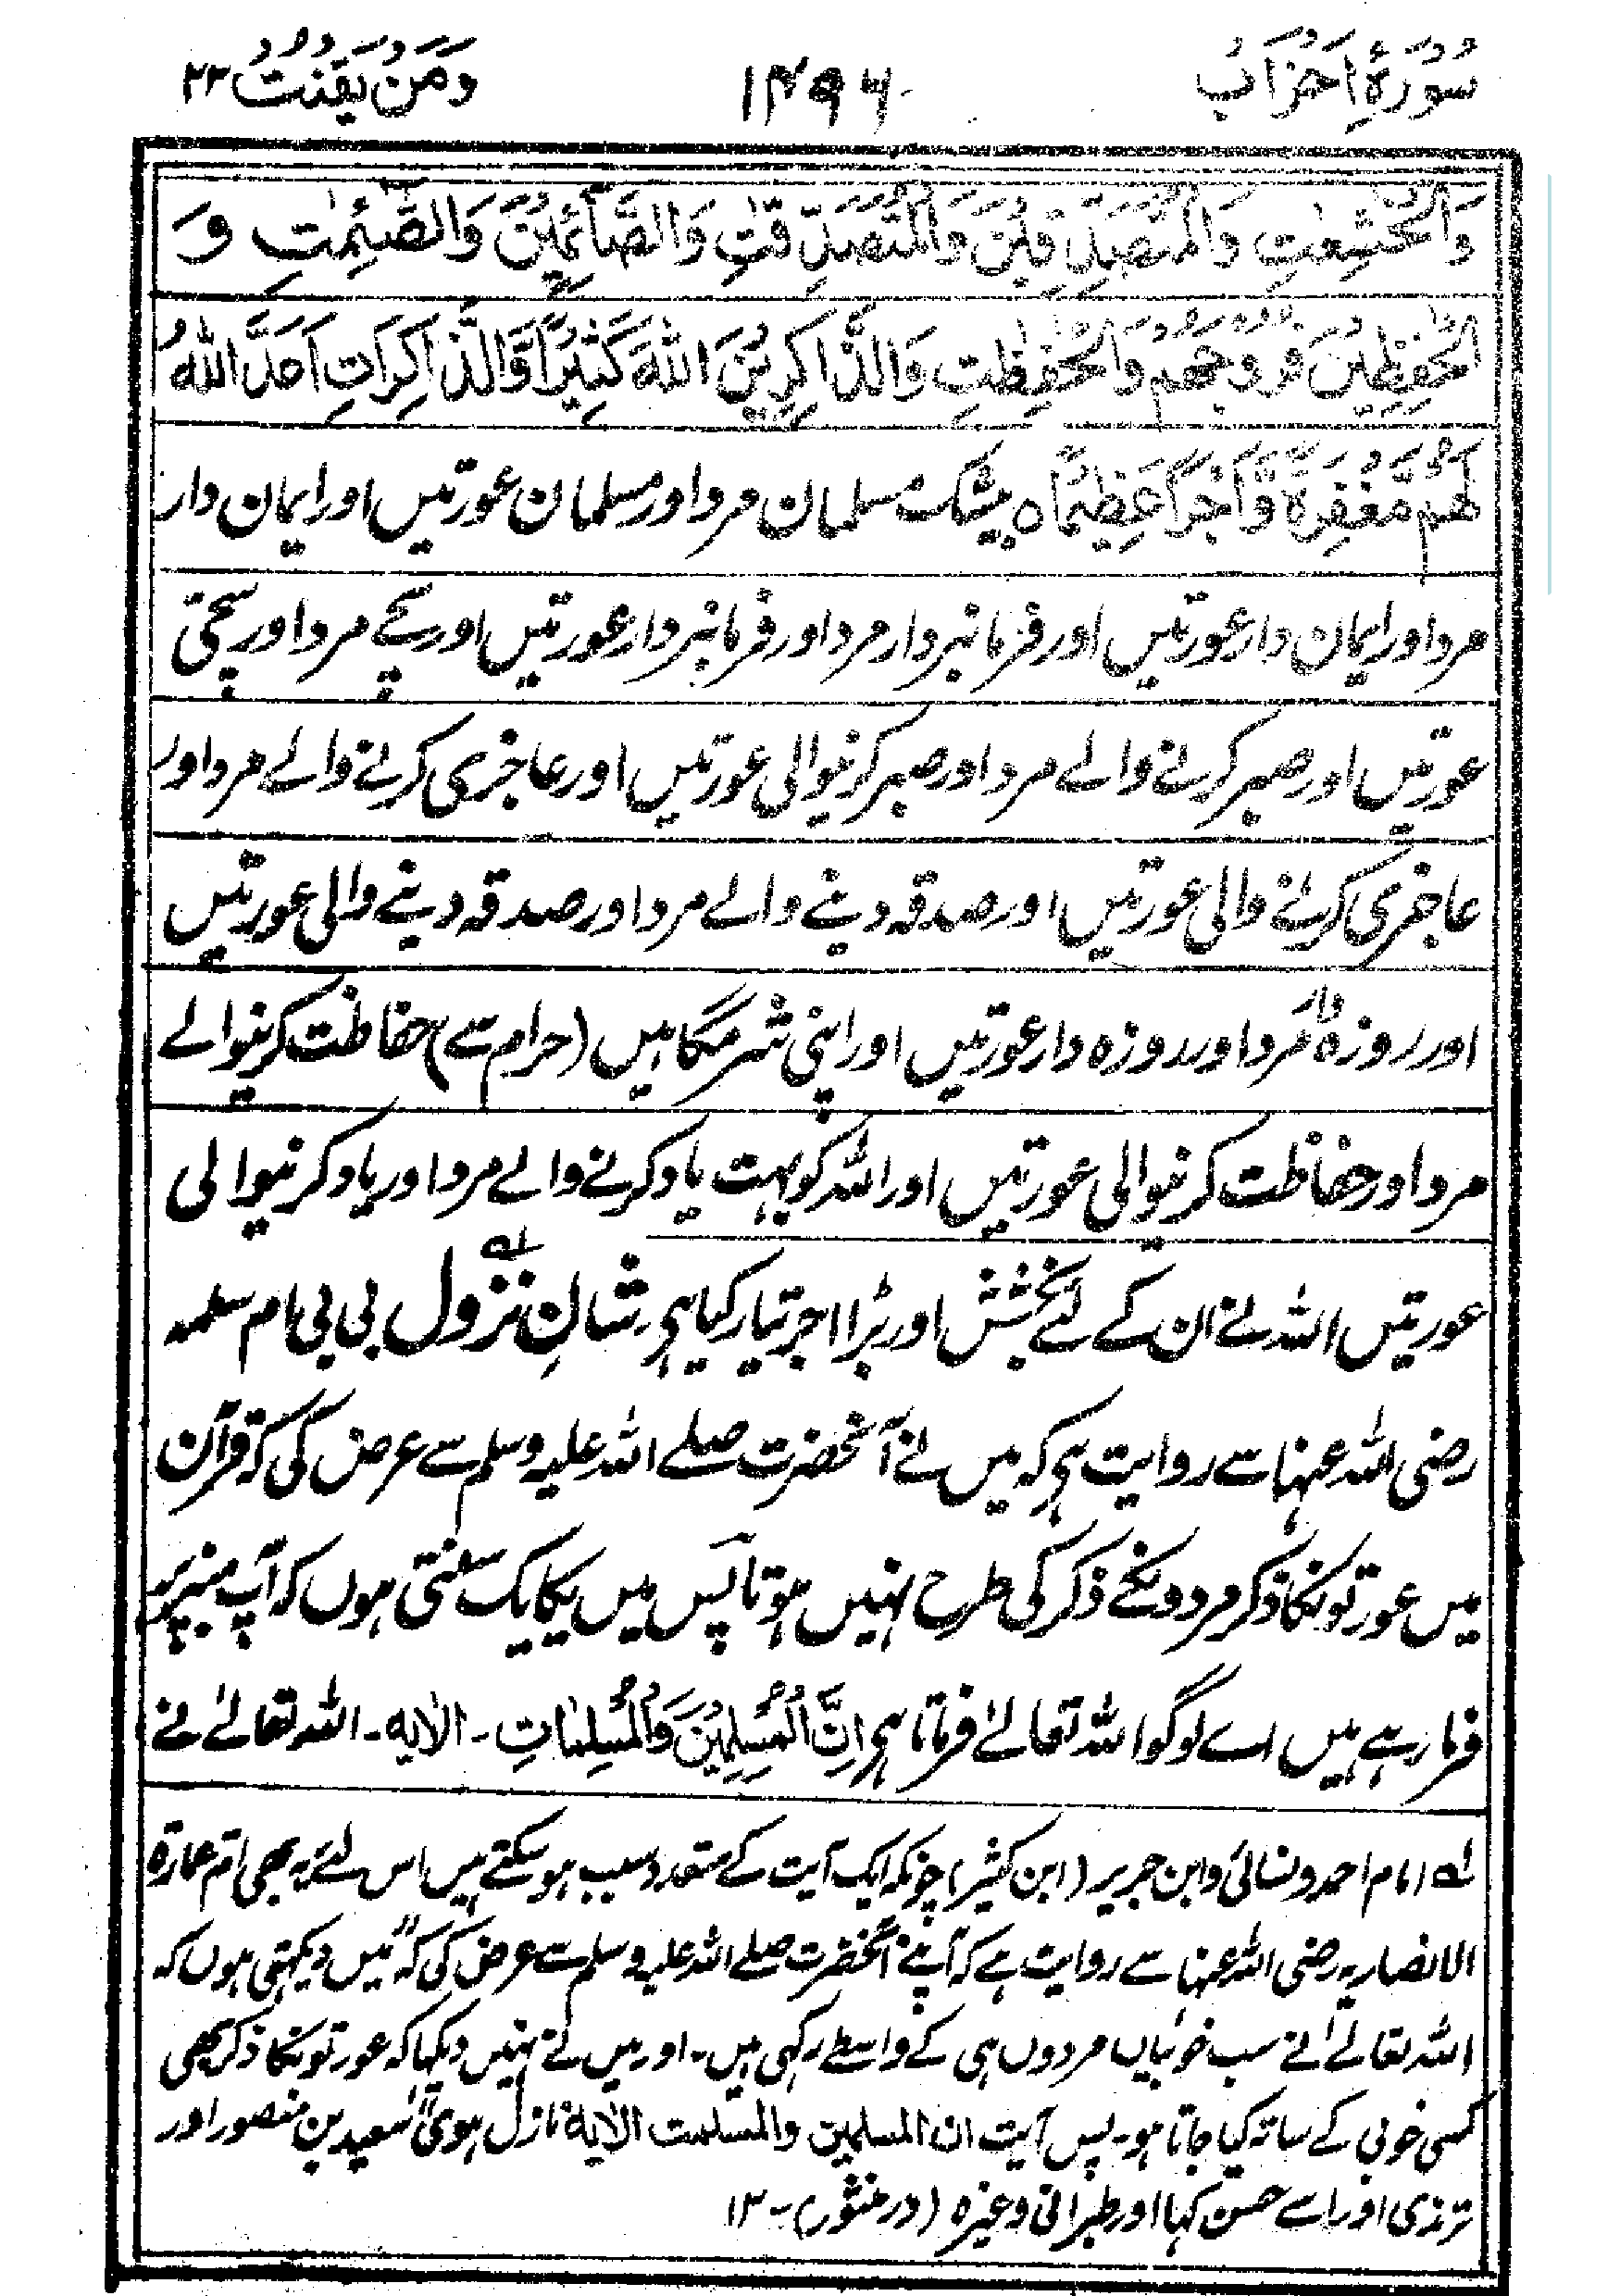 سُوْرَۃُ اَحْزَابُ ۱۴۹۶ وَمَنْ یَّقْنُتْ ۲۲
وَالْخٰشِعٰتِ وَالْمُتَصَدِّقِیْنَ وَالْمُتَصَدِّقٰتِ وَالصَّآئِمِیْنَ وَالصّٰٓئِمٰتِ وَ
الْحٰفِظِیْنَ فُرُوْجَھُمْ وَالْحٰفِظٰتِ وَالذَّاکِرِیْنَ اللّٰہَ کَثِیْرًا وَّالذَّاکِرَاتِ اَعَدَّ اللّٰہُ
لَھُمْ مَّغْفِرَۃً وَّاَجْرًا عَظِیْمًا ہ بیشک مسلمان مرد اور مسلمان عورتیں اور ایمان دار
مرد اور ایمان دار عورتیں اور فرمانبردار مرد اور فرمانبردار عورتیں اور سچے مرد اور سچی
عورتیں اور صبر کرنے والے مرد اور صبر کرنیوالی عورتیں اور عاجزی کرنے والے مرد اور
عاجزی کرنے والی عورتیں اور صدقہ دینے والے مرد اور صدقہ دینے والی عورتیں
اور روزہ دار مرد اور روزہ دار عورتیں اور اپنی شرمگاہیں (حرام سے) حفاظت کرنیوالے
مرد اور حفاظت کرنیوالی عورتیں اور اللہ کو بہت یاد کرنے والے مرد اور یاد کرنیوالی
عورتیں اللہ نے ان کے لئے بخشش اور بڑا اجر تیار کیا ہی۔ شانِ نزول لہ بی بی ام سلمہ
رضی اللہ عنہا سے روایت ہی کہ میں نے آنحضرت صلے اللہ علیہ وسلم سے عرض کی کہ قرآن
میں عورتونکا ذکر مردونکے ذکر کی طرح نہیں ہوتا پس میں یکایک سنتی ہوں کہ آپ منبر پر
فرما رہے ہیں اے لوگو اللہ تعالےٰ فرماتا ہی اِنَّ الْمُسْلِمِیْنَ وَالْمُسْلِمَاتِ۔ الاٰیہ۔ اللہ تعالےٰ نے
لہ امام احمد ونسائی وابن جریر (ابن کثیر) چونکہ ایک آیت کے متعدد سبب ہو سکتے ہیں اس لئے یہ بھی ام عمارۃ
الانصاریہ رضی اللہ عنہا سے روایت ہے کہ آپنے آنحضرت صلے اللہ علیہ وسلم سے عرض کی کہ "میں دیکھتی ہوں کہ
اللہ تعالےٰ نے سب خوبیاں مردوں ہی کے واسطے رکھی ہیں۔ اور میں نے نہیں دیکھا کہ عورتونکا ذکر بھی
کسی خوبی کے ساتہ کیا جاتا ہو۔ پس آیت ان المسلمین والمسلمت الاٰیۃ نازل ہوئی" سعید بن منصور اور
ترمذی اور اسے حسن کہا اور طبرانی وغیرہ (در منثور)۔ ۱۲